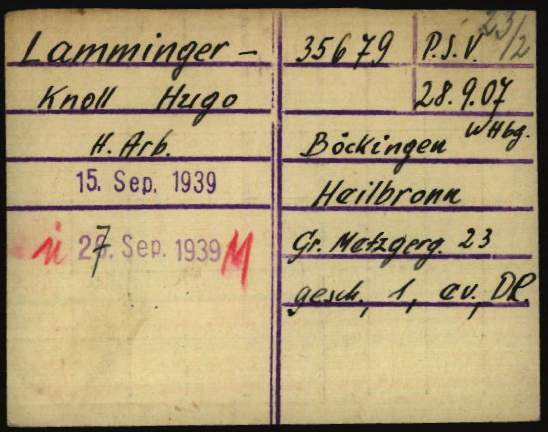 Lamminger -
Knoll Hugo
H. Arb.
15. Sep. 1939
27. Sep. 1939 M
23/2
35679 P.S.V.
28.9.07
Böckingen WHbg.
Heilbronn
Gr. Metzgerg. 23
gesch., 1, ev., DR.